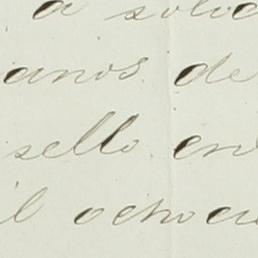 a solic
anos de
sello en
il ochoci